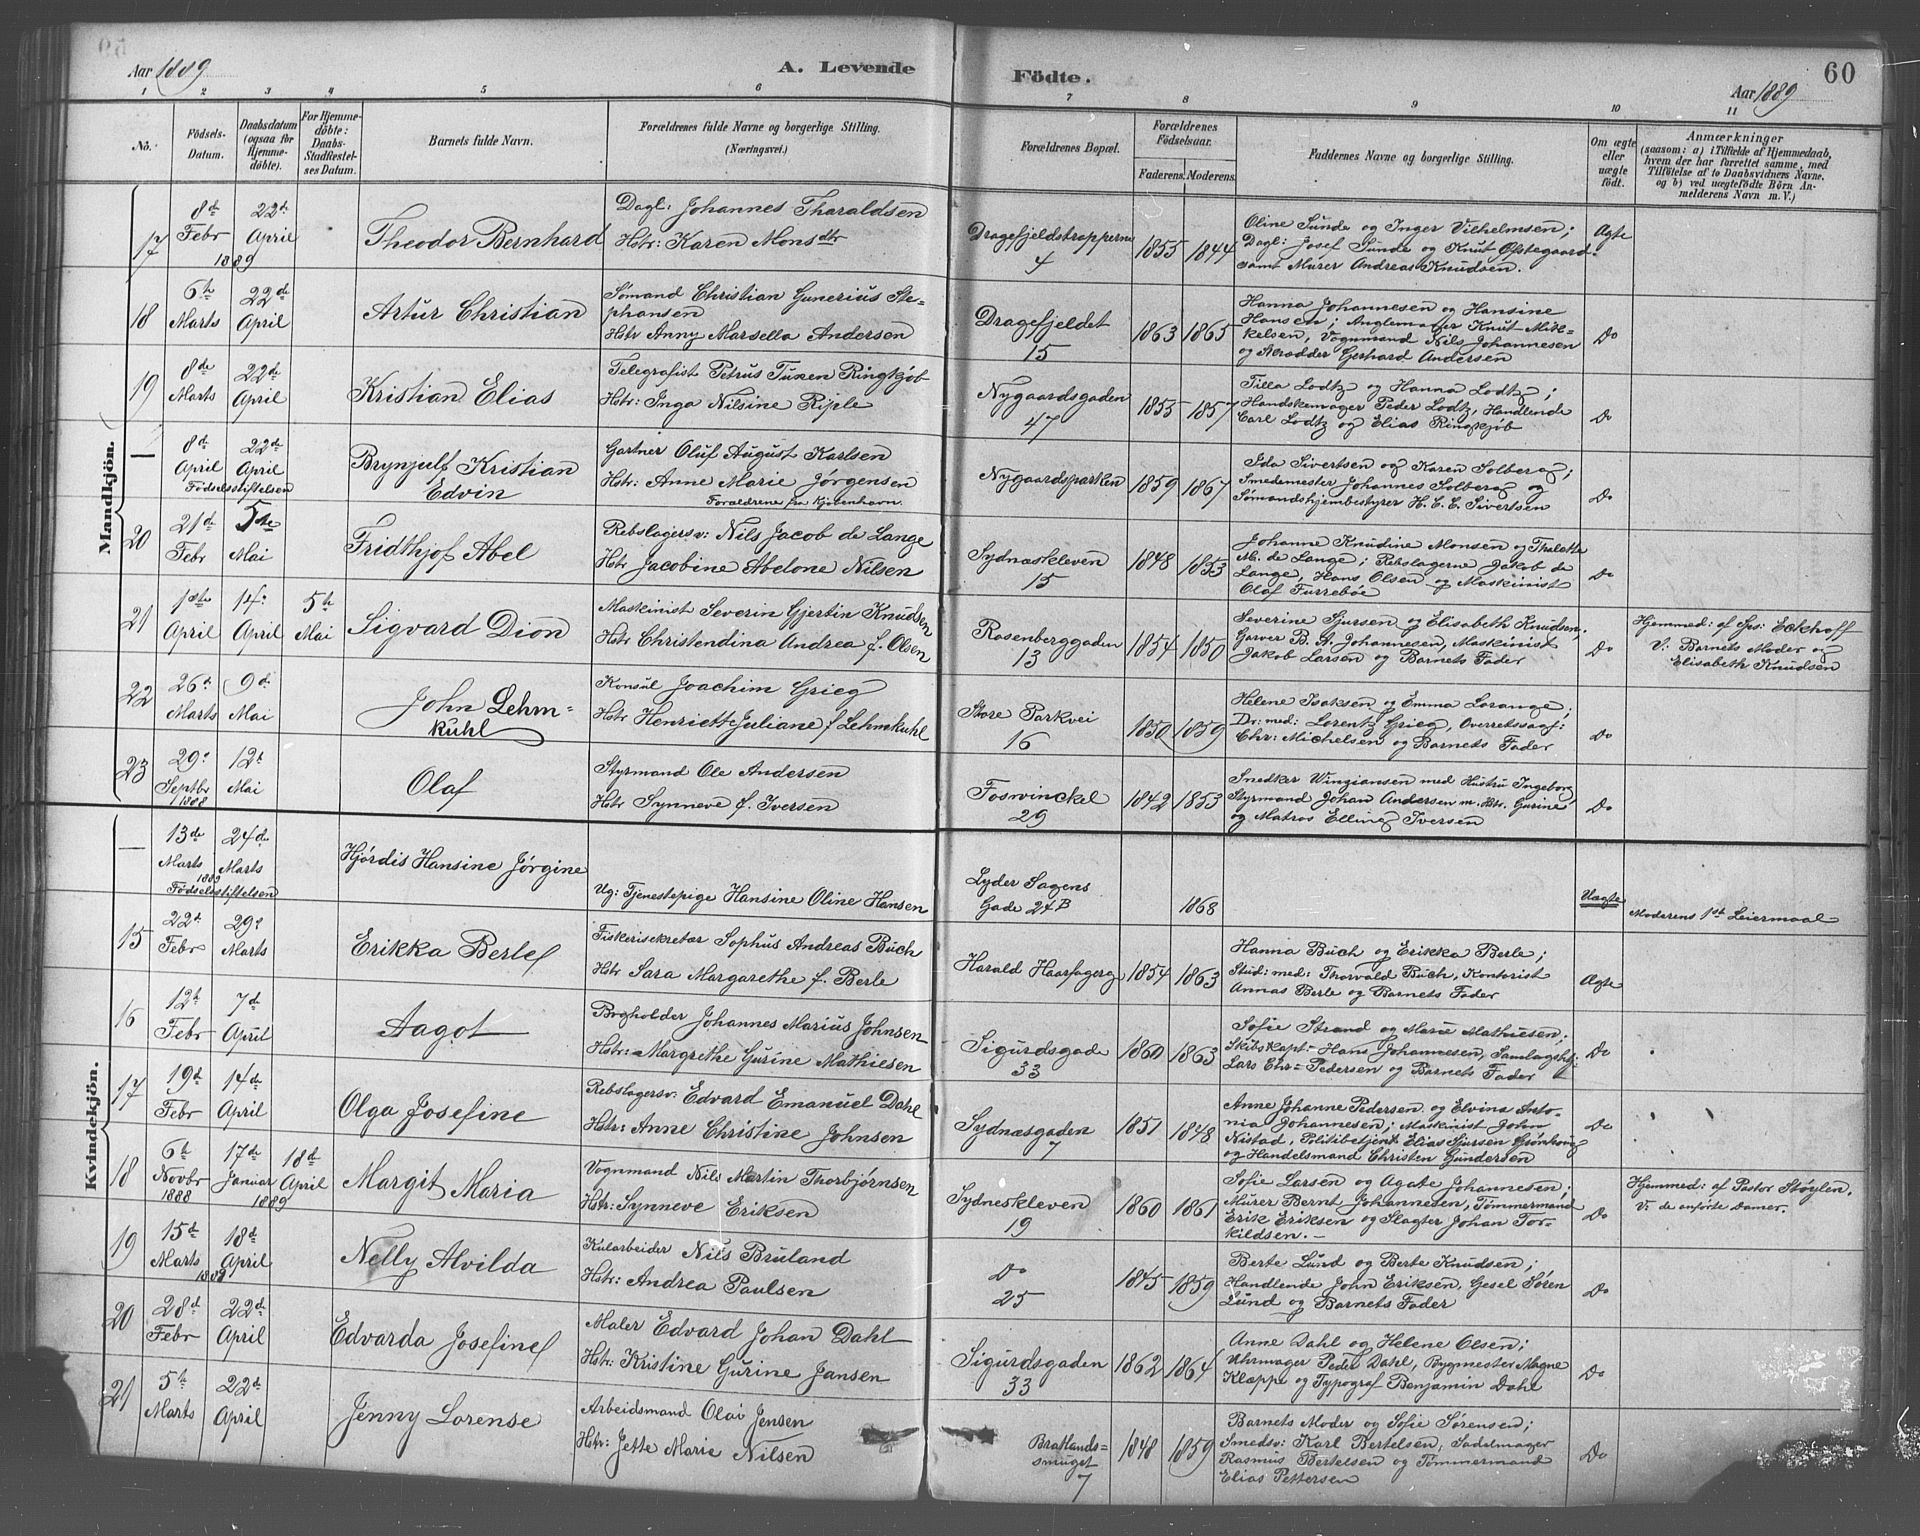 Aar 1889
A. Levende
Födte.
Aar 1889
60
1 2 3 4 5 6 7 8 9 10 11
No.
Födsels-
Datum.
Daabsdatum
(ogsaa for
Hjemme-
döbte).
For Hjemme-
döbte:
Daabs-
Stadfæstel-
ses Datum.
Barnets fulde Navn.
Forældrenes fulde Navne og borgerlige Stilling.
(Næringsvei.)
Forældrenes Bopæl.
Forældrenes
Födselsaar.
Faderens. Moderens.
Faddernes Navne og borgerlige Stilling.
Om ægte
eller
uægte
födt.
Anmærkninger
(saasom: a) i Tilfælde af Hjemmedaab,
hvem der har forrettet samme, med
Tilföielse af to Daabsvidners Navne,
og b) ved uægtefödte Börn An-
melderens Navn m. V.)
Mandkjön.
17
8de Febr 1889
22de April
Theodor Bernhard
Dagl: Johannes Tharaldsen
Hstr: Karen Monsdtr
Dragefjeldstrapperne
4
1855 1844
Oline Sunde og Inger Vilhelmsen;
Dagl: Josef Sunde og Knut Østegaard
samt Murer Andreas Knudsen.
Ægte
18
6te Marts
22de April
Artur Christian
Sømand Christian Gunerius Ste-
phansen
Hstr Anny Marsella Andersen
Dragefjeldet
15
1863 1865
Hanna Johannesen og Hansine
Hansen; Anglemager Knut Mik-
kelsen, Vognmand Nils Johannesen
og Gerhard Andersen
Do
19
8de Marts
22de April
Kristian Elias
Telegrafist Petrus Tuxen Ringkjøb
Hstr: Inga Nilsine Riple
Nygaardsgaden
47
1855 1857
Tilla Lodtz og Hanna Lodtz;
Handskemager Peder Lodtz, Handlende
Carl Lodtz og Elias Ringkjøb
Do
—
8de April
Fødselsstiftelsen
22de April
Brynjulf Kristian
Edvin
Gartner Oluf August Karlsen
Hstr: Anne Marie Jørgensen
Forældrene fra Kjøbenhavn.
Nygaardsparken
1859 1867
Ida Sivertsen og Karen Solberg;
Smedemester Johannes Solberg og
Sømandshjembestyrer H. C. C. Sivertsen
Do
20
21de Febr
5te Mai
Fridthjof Abel
Rebslagersv: Nils Jacob de Lange
Hstr Jacobine Abelone Nilsen
Sydnæskleven
15
1848 1853
Johanne Knudine Monsen og Thalette
M. de Lange; Rebslagerne Jakob de
Lange, Hans Olsen og Maskinist
Olaf Furrebøe
Do
21
1ste April
14. April
5te Mai
Sigvard Dion
Maskinist Severin Gjertin Knudsen
Hstr Christendina Andrea f. Olsen
Rosenberggaden
13
1854 1850
Severine Sjursen og Elisabeth Knudsen,
Garver B. A. Johannesen, Maskinist
Jakob Larsen og Barnets Fader
Do
Hjemmed: af Eckhoff
V: Barnets Moder og
Elisabeth Knudsen
22
26d Marts
9d Mai
John Lehm-
kuhl
Konsul Joachim Grieg
Hstr Henriette Juliane f. Lehmkuhl
Store Parkvei
16
1850 1859
Helene Isaksen og Emma Lorange;
Dr: med: Lorentz Grieg, Overretssagf:
Chr: Michelsen og Barnets Fader
Do
23
29. Septbr 1888
12t Mai
Olaf
Styrmand Ole Andersen
Hstr Synneve f. Iversen
Fosvinckel
29
1842 1853
Snedker Wingiansen med Hustru Ingeborg
Styrmand Johan Andersen m. Hstr. Gurine
og Matros Elling Iversen
Do
Kvindekjön.
—
13de Marts 1889
Fødselsstiftelsen
24de Marts
Hjørdis Hansine Jørgine
Ug: Tjenestepige Hansine Oline Hansen
Lyder Sagens
Gade 24B
1868
Uægte
Moderens 1ste Leiermaal
15
22d Febr
29d Marts
Erikka Berle
Fiskerisekretær Sophus Andreas Buch
Hstr Sara Margarethe f. Berle
Harald Haarfagerg
1854 1863
Hanna Buch og Erikka Berle;
Stud: med: Thorvald Buch, Kontorist
Annas Berle og Barnets Fader
Ægte
16
12t Febr
7d April
Aagot
Bogholder Johannes Marius Johnsen
Hstr: Margrethe Gurine Mathiesen
Sigurdsgade
33
1860 1863
Sofie Strand og Marie Mathiesen;
Skibskapt: Hans Johannesen,
Lars Chr: Pedersen og Barnets Fader
Do
17
19d Febr
14de April
Olga Josefine
Rebslagersv: Edvard Emanuel Dahl
Hstr: Anne Christine Johnsen
Sydnæsgaden
7
1851 1848
Anne Johanne Pedersen og Elvina Anto-
nia Johannesen; Maskinist John
Nistad, Politibetjent Elias Sjursen
og Handelsmand Christen Gundersen
Do
18
6te Novbr 1888
17de Januar 1889
18de April
Margit Maria
Vognmand Nils Martin Thorbjørnsen
Hstr: Synneve Eriksen
Sydneskleven
19
1860 1861
Sofie Larsen og Agate Johannesen;
Murer Bernt Johannesen, Tømmermand
Erik Eriksen og Slagter Johan Tor-
kildsen. —
Do
Hjemmed: af Pastor Støylen.
V: de anførte Damer.
19
15d Marts 1889
18d April
Nelly Alvilda
Kularbeider Nils Bruland
Hstr: Andrea Paulsen
Do
25
1845 1859
Berte Lund og Berte Knudsen;
Handlende John Eriksen, Gesel Søren
Lund og Barnets Fader
Do
20
28d Febr
22de April
Edvarda Josefine
Maler Edvard Johan Dahl
Hstr: Kristine Gurine Jansen
Sigurdsgaden
33
1862 1864
Anne Dahl og Helene Olsen;
Uhrmager Peder Dahl, Bygmester Magne
Klæppe og Typograf Benjamin Dahl
Do
21
5te Marts
22de April
Jenny Lorense
Arbeidsmand Olai Jensen
Hstr: Jette Marie Nilsen
Bratlands-
smuget
7
1848 1859
Barnets Moder og Sofie Sørensen;
Smedsv: Karl Bertelsen, Sadelmager
Rasmus Bertelsen og Tømmermand
Elias Pettersen
Do